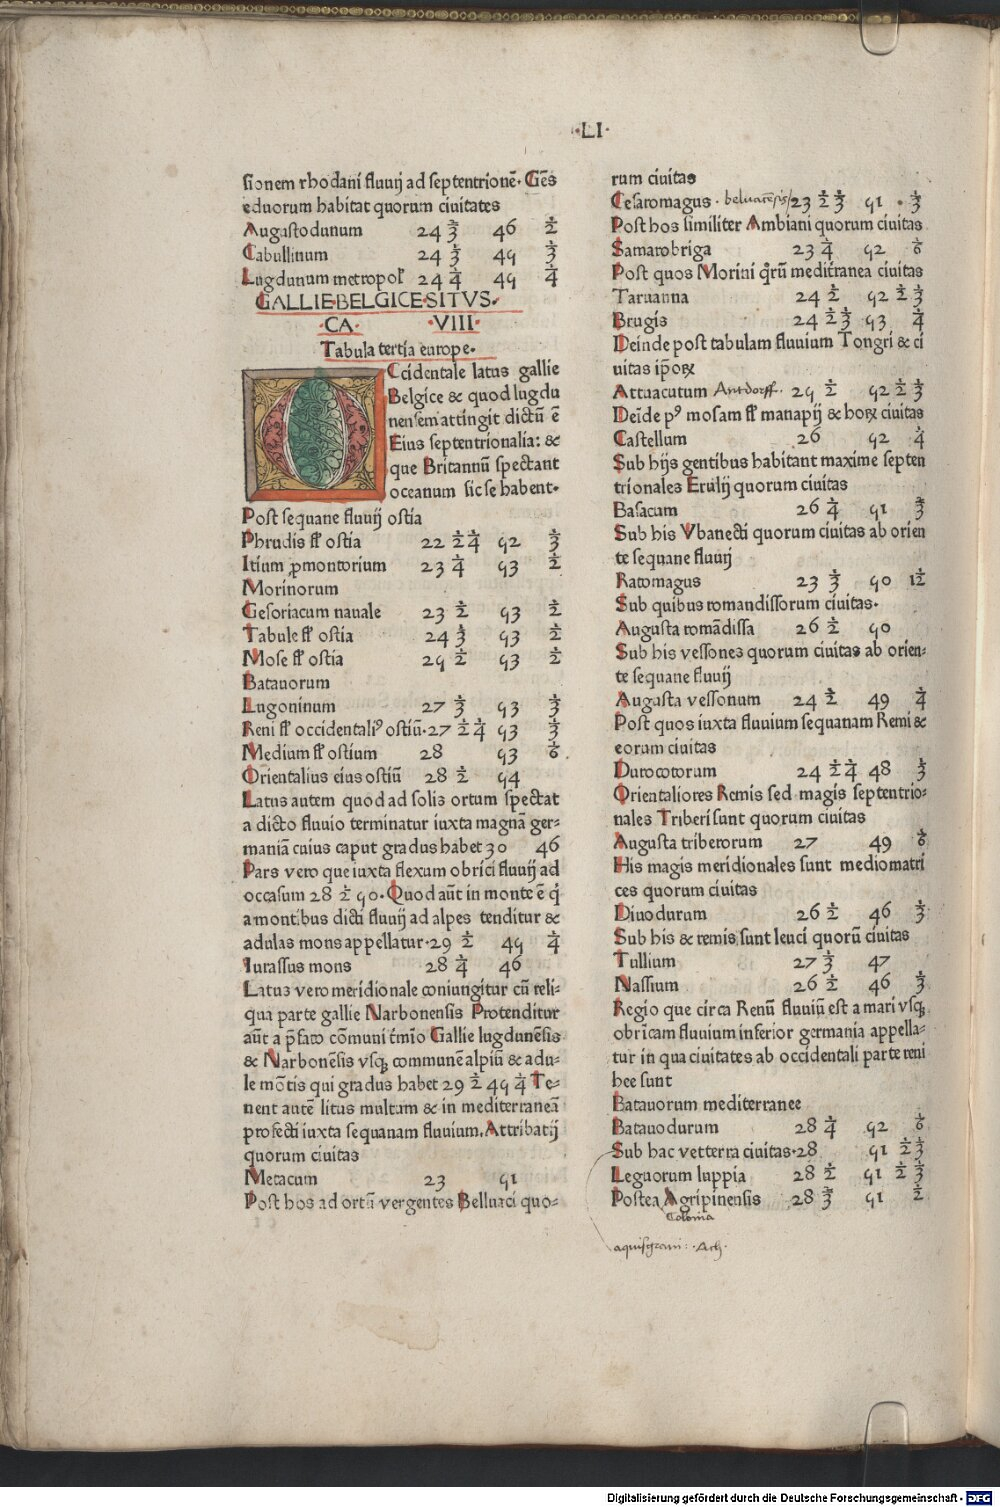 ·LI·
sionem rhodani fluuij ad septentrionē. Gēs
eduorum habitat quorum ciuitates
Augustodunum 24 2/3 46 1/2
Cabullinum 24 1/3 45 1/3
Lugdunum metropol' 24 1/4 45 1/4
GALLIE·BELGICE·SITVS·
·CA· ·VIII·
Tabula tertia europe·
OCcidentale latus gallie
Belgice & quod lugdu
nensem attingit dictū ē
Eius septentrionalia: &
que Britannū spectant
oceanum sic se habent·
Post sequane fluuij ostia
Phrudis fl' ostia 22 1/2 1/4 52 1/3
Itium p̱montorium 23 1/4 53 1/2
Morinorum
Gesoriacum nauale 23 1/2 53 1/2
Tabule fl' ostia 24 1/3 53 1/2
Mose fl' ostia 25 1/2 53 1/2
Batauorum
Lugoninum 27 1/3 53 1/3
Reni fl' occidentaliꝰ ostiū·27 1/2 1/4 53 1/3
Medium fl' ostium 28 53 1/6
Orientalius eius ostiū 28 1/2 54
Latus autem quod ad solis ortum spectat
a dicto fluuio terminatur iuxta magnā ger-
maniā cuius caput gradus habet 30 46
Pars vero que iuxta flexum obrici fluuij ad
occasum 28 1/2 50·Quod aūt in monte ē q̇
a montibus dicti fluuij ad alpes tenditur &
adulas mons appellatur·29 1/2 45 1/4
Iurassus mons 28 1/4 46
Latus vero meridionale coniungitur cū reli-
qua parte gallie Narbonensis Protenditur
aūt a p̄fato cōmuni t̄mīo Gallie lugdunēsis
& Narbonēsis vsqꝫ communē alpiū & adu-
le mōtis qui gradus habet 29 1/2 45 1/4 Te-
nent autē litus multum & in mediterraneā
profecti iuxta sequanam fluuium. Attribatij
quorum ciuitas
Metacum 23 51
Post hos ad ortū vergentes Belluaci quo-
rum ciuitas
Cesaromagus· beluacēsis/23 1/2 1/3 51 · 1/3
Post hos similiter Ambiani quorum ciuitas
Samarobriga 23 1/4 52 1/6
Post quos Morini q̇rū medit́ranea ciuitas
Taruanna 24 1/2 52 1/2 1/3
Brugis 24 1/2 1/3 53 1/4
Deinde post tabulam fluuium Tongri & ci
uitas ip̄oꝝ
Attuacutum Antdorff. 25 1/2 52 1/2 1/3
Deīde pꝰ mosam fl' manapij & hoꝝ ciuitas
Castellum 26 52 1/4
Sub hijs gentibus habitant maxime septen
trionales Erulij quorum ciuitas
Basacum 26 1/4 51 1/3
Sub his Vbanecti quorum ciuitas ab orien
te sequane fluuij
Ratomagus 23 1/3 50 1 1/2
Sub quibus romandissorum ciuitas·
Augusta romādissa 26 1/2 50
Sub his vessones quorum ciuitas ab orien-
te sequane fluuij
Augusta vessonum 24 1/2 49 1/4
Post quos iuxta fluuium sequanam Remi &
eorum ciuitas
Durocotorum 24 1/2 1/4 48 1/3
Orientaliores Remis sed magis septentrio-
nales Triberi sunt quorum ciuitas
Augusta triberorum 27 49 1/6
His magis meridionales sunt mediomatri
ces quorum ciuitas
Diuodurum 26 1/2 46 1/3
Sub his & remis sunt leuci quorū ciuitas
Tullium 27 1/3 47
Nassium 26 1/2 46 1/3
Regio que circa Renū fluuiū est a mari vsqꝫ
obricam fluuium inferior germania appella-
tur in qua ciuitates ab occidentali parte reni
hee sunt
Batauorum mediterranee
Batauodurum 28 1/4 52 1/6
Sub hac vetterra ciuitas·28 51 1/2 1/3
Leguorum luppia 28 1/2 51 1/2 1/3
Postea Agripinensis 28 2/3 51 1/2
Colonia
aquisgrani: ·Ach·
Digitalisierung gefördert durch die Deutsche Forschungsgemeinschaft - DFG